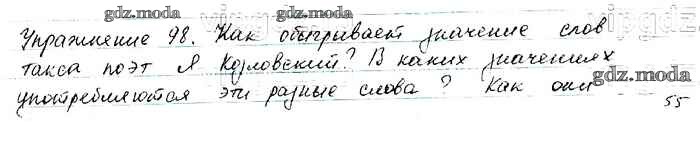 gdz.moda
Упражнение 98. Как обыгривает значение слов
такса поэт Я Козловский? В каких значениях
gdz.moda
употребляются эти разные слова? Как они
55